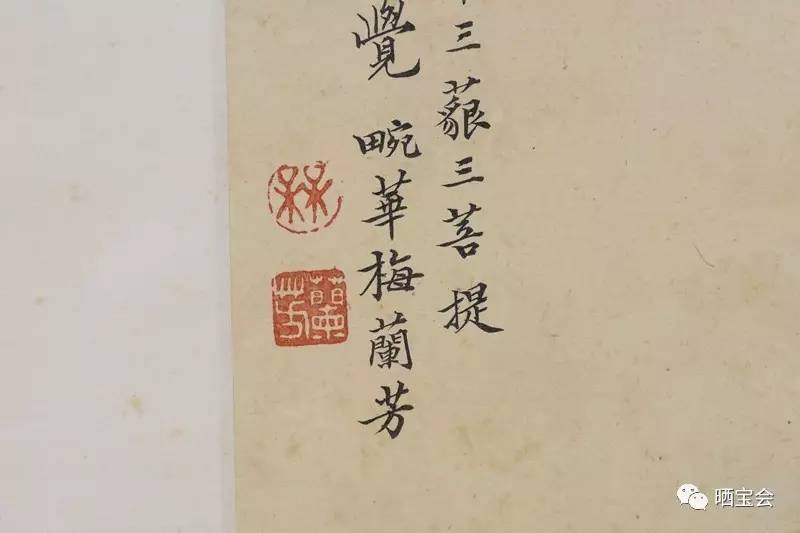 三藐三菩提
覺 畹華梅蘭芳
蘭芳
晒宝会